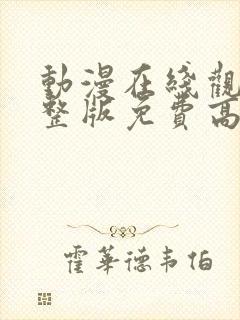 動漫在綫觀
整版免費高
霍華德韦伯